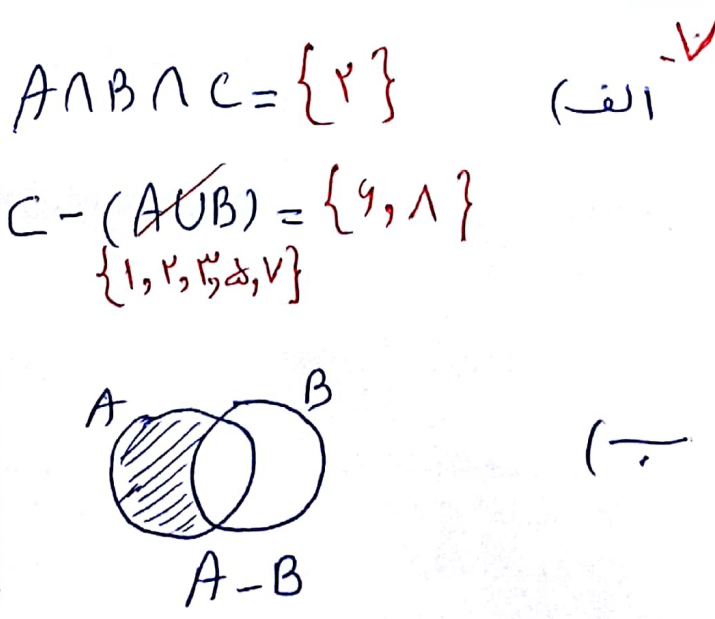 ۷-
الف) A∩B∩C = {۲}
C - (A∪B) = {۶, ۸}
{۱, ۲, ۳, ۵, ۷}
ب)
A B
A - B